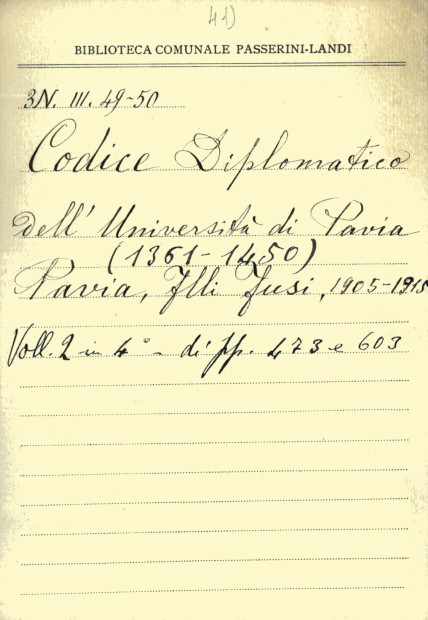 41)
BIBLIOTECA COMUNALE PASSERINI-LANDI
3N. III. 49-50
Codice Diplomatico
dell' Università di Pavia
(1361-1450)
Pavia, Flli Fusi, 1905-1915
Voll. 2 in 4° - di pp. 473 e 603